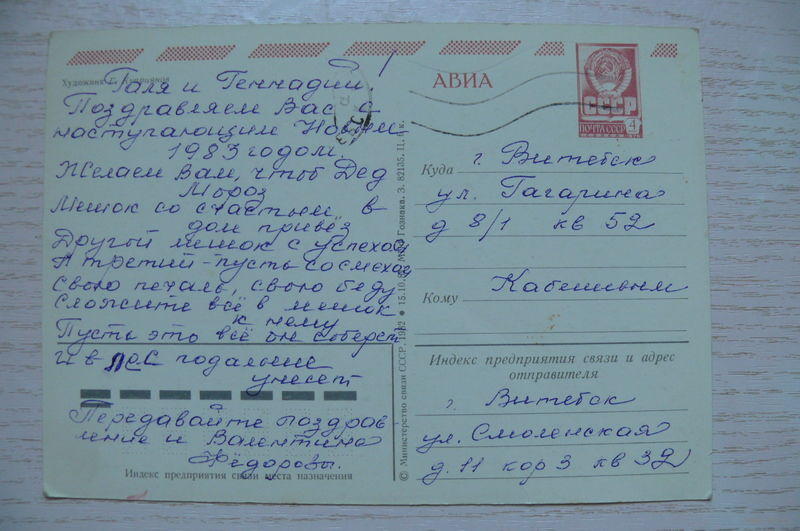 Художник
Галя и Геннадий!
Поздравляем Вас с
наступающим Новым
1983 годом.
Желаем Вам, чтоб Дед
Мороз
Мешок со счастьем в
дом привёз
Другой мешок с успехом
А третий - пусть со смехом
Свою печаль, свою беду
Сложите всё в мешок
к нему
Пусть это всё он соберет
И в лес подальше
унесет
Передавайте поздрав
ление и Валентине
Фёдоровы.
Индекс предприятия связи места назначения
© Министерство связи СССР, 1982 • 15.10. Гознака. З. 82135. Ц. к.
АВИА
СССР
ПОЧТА СССР 4
Куда г. Витебск
ул. Гагарина
д 8/1 кв 52
Кому
Индекс предприятия связи и адрес
отправителя
г. Витебск
ул. Смоленская
д. 11 кор 3 кв 32